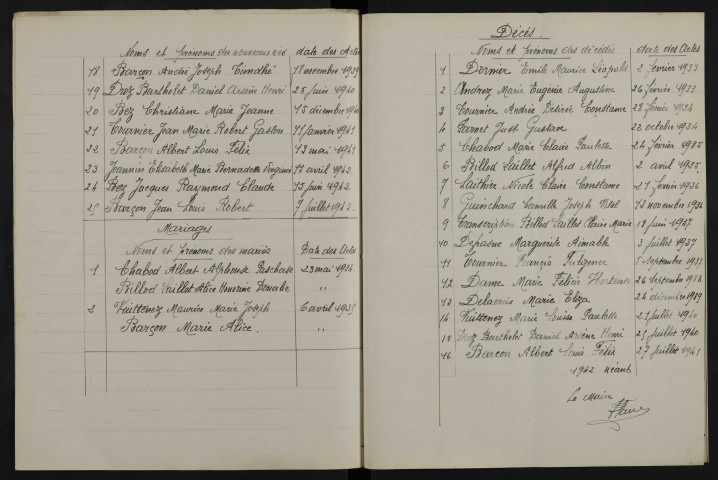 Noms et prénoms des nouveaux nés date des Actes
18 Barçon André Joseph Timothé 18 novembre 1939
19 Droz Barthelet Daniel Arsène Henri 25 juin 1940
20 Bez Christiane Marie Jeanne 15 décembre 1940
21 Tournier Jean Marie Robert Gaston 11 janvier 1941
22 Barçon Albert Louis Félix 13 mai 1941
23 Jeannin Elisabeth Marie Bernadette 17 avril 1942
24 Bez Jacques Raymond Claude 15 juin 1942
25 Barçon Jean Louis Robert 7 juillet 1942
Mariages
Noms et prénoms des mariés Date des Actes
1 Chabod Albert Alphonse Paschase 23 mai 1934
Billod Laillet Alice Honorine "
2 Vuittenez Maurice Marie Joseph 6 avril 1935
Barçon Marie Alice. "
Décès.
Noms et prénoms des décédés date des Actes
1 Dernier Emile Maurice Léopold 2 février 1933
2 Andrey Marie Eugénie Augustine 26 février 1933
3 Tournier Andréa Désirée Constance 28 février 1934
4 Garnet Just Gustave 22 octobre 1934
5 Chabod Marie Claire Paulette 24 février 1935
6 Billod Laillet Alfred Albin 2 avril 1935
7 Laithier Nicole Claire Constance 21 février 1936
8 Guinchard Camille Joseph 18 novembre 1936
9 Transcription Billod Laillet Claire Marie 18 juin 1937
10 Marguerite Aimable 3 juillet 1937
11 Tournier François Fulgence 5 septembre 1937
12 Dame Marie Félicie Hortense 26 septembre 1938
13 Delacroix Marie Eliza 24 décembre 1939
14 Vuittenez Marie Louise Paulette 21 juillet 1940
15 Droz Barthelet Daniel Arsène Henri 25 juillet 1940
16 Barçon Albert Louis Félix 27 juillet 1941
1942 néant
Le Maire